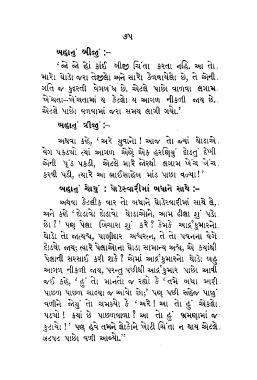 ૭૫
બહાનું બીજું :–
' એ એ હો! કાંઈ બીજી ચિંતા કરતા નહિ. આ તો.
મારો ઘોડો જરા તેજીલો અને સારો કેળવાયેલો છે, તે એની
ગતિ જ કુદરતી વેગબંધ છે. એટલે પાછો વાળવા લગામ
ખેંચતા–ખેંચતામાં ય કેટલો ય આગળ નીકળી જાય છે.
એટલે પાછો વળવામાં જરા સમય લાગી ગયો.'
બહાનું ત્રીજું :–
અથવા કહે, ' અરે સુભટો ! આજ તો જ્યાં ઘોડાએ
વેગ પકડ્યો ત્યાં આગળ એણે એક હરણિયું દોડતું દેખી
એની પૂંઠ પકડી, એટલે મારે જોરથી લગામ ખેંચ ખેંચ
કરવી પડી, ત્યારે આ ભાઈસાહેબ માંડ પાછા વળ્યા !'
બહાનું ચોથું : ઘોડેસ્વારીમાં બધાને સાથે :–
અથવા કેટલીક વાર તો બધાને ઘોડેસ્વારીમાં સાથે લે,
અને કહે ' દોડાવો દોડાવો ઘોડાઓને, આમ ઢીલા શું પડો
છો !' પણ પેલા બિચારા શું કરે ? કેમકે આર્દ્રકુમારનો
ઘોડો તો જાત્યશ્વ, પાણીદાર અશ્વરત્ન, તે તો પવનના વેગે
દોડ્યો જાય; ત્યારે પેલાઓના ઘોડા સામાન્ય અશ્વ, એ ક્યાંથી
પેલાની સરસાઈ કરી શકે ? એમાં આર્દ્રકુમારનો ઘોડો બહુ
આગળ નીકળી જાય, પરન્તુ પછીથી આર્દ્રકુમાર પાછો આવી
જઈ કહે, ' હું તો માનતો જ રહ્યો કે 'તમે બધા મારી
પાછળ પાછળ આવ્યા જ આવો છો;' પણ પછી સહેજ પાછું
વળીને જોયું તો ચમક્યો કે ' અરે ! આ તો હું એકલો
પડ્યો ! ક્યાં છે પાછળવાળા ! આ તો હું ભ્રમણામાં જ
કુટાયો !' પણ હવે તમને લોકોને ખોટી ચિંતા ન થાય એટલે.
ઝટપટ પાછો વળી આવ્યો.''